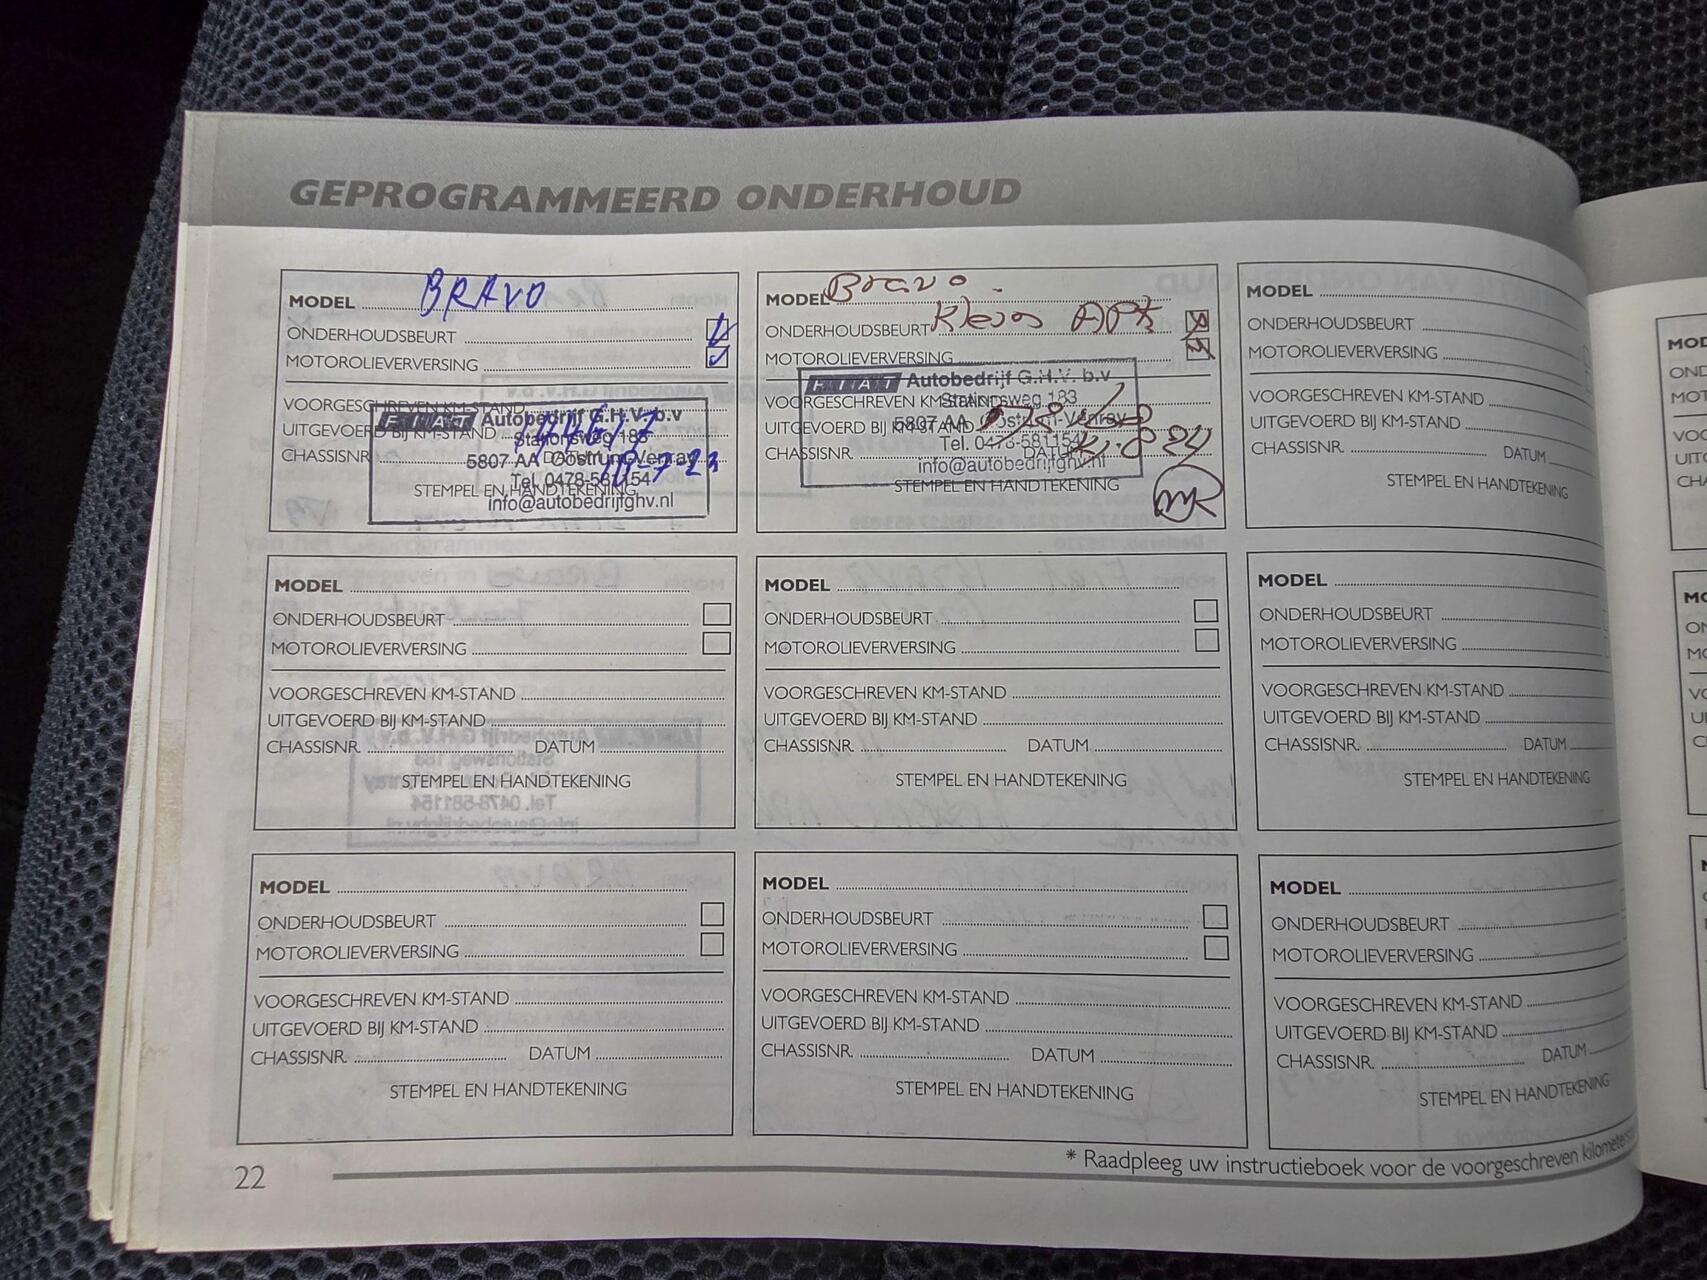 GEPROGRAMMEERD ONDERHOUD
MODEL BRAVO
ONDERHOUDSBEURT
MOTOROLIEVERVERSING
VOORGESCHREVEN KM-STAND
UITGEVOERD BIJ KM-STAND
CHASSISNR. DATUM
STEMPEL EN HANDTEKENING
FIAT Autobedrijf G.H.V. b.v
Stationsweg 183
5807 AA Oostrum-Venray
Tel. 0478-581154
info@autobedrijfghv.nl
MODEL Bravo
ONDERHOUDSBEURT
MOTOROLIEVERVERSING
VOORGESCHREVEN KM-STAND
UITGEVOERD BIJ KM-STAND
CHASSISNR. DATUM
STEMPEL EN HANDTEKENING
FIAT Autobedrijf G.H.V. b.v
Stationsweg 183
5807 AA Oostrum-Venray
Tel. 0478-581154
info@autobedrijfghv.nl
MODEL
ONDERHOUDSBEURT
MOTOROLIEVERVERSING
VOORGESCHREVEN KM-STAND
UITGEVOERD BIJ KM-STAND
CHASSISNR. DATUM
STEMPEL EN HANDTEKENING
MODEL
ONDERHOUDSBEURT
MOTOROLIEVERVERSING
VOORGESCHREVEN KM-STAND
UITGEVOERD BIJ KM-STAND
CHASSISNR. DATUM
STEMPEL EN HANDTEKENING
MODEL
ONDERHOUDSBEURT
MOTOROLIEVERVERSING
VOORGESCHREVEN KM-STAND
UITGEVOERD BIJ KM-STAND
CHASSISNR. DATUM
STEMPEL EN HANDTEKENING
MODEL
ONDERHOUDSBEURT
MOTOROLIEVERVERSING
VOORGESCHREVEN KM-STAND
UITGEVOERD BIJ KM-STAND
CHASSISNR. DATUM
STEMPEL EN HANDTEKENING
MODEL
ONDERHOUDSBEURT
MOTOROLIEVERVERSING
VOORGESCHREVEN KM-STAND
UITGEVOERD BIJ KM-STAND
CHASSISNR. DATUM
STEMPEL EN HANDTEKENING
MODEL
ONDERHOUDSBEURT
MOTOROLIEVERVERSING
VOORGESCHREVEN KM-STAND
UITGEVOERD BIJ KM-STAND
CHASSISNR. DATUM
STEMPEL EN HANDTEKENING
MODEL
ONDERHOUDSBEURT
MOTOROLIEVERVERSING
VOORGESCHREVEN KM-STAND
UITGEVOERD BIJ KM-STAND
CHASSISNR. DATUM
STEMPEL EN HANDTEKENING
* Raadpleeg uw instructieboek voor de voorgeschreven
22